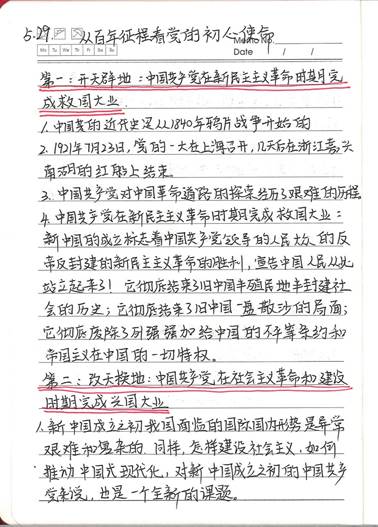 5.29 从百年征程看党的初心使命
Mo Tu We Th Fr Sa Su
Date / /
第一：开天辟地：中国共产党在新民主主义革命时期完
成救国大业.
1.中国的近代史是从1840年鸦片战争开始的
2.1921年7月23日,党的一大在上海召开,几天后在浙江嘉兴
南湖的红船上结束。
3.中国共产党对中国革命道路的探索经历了艰难的历程.
4.中国共产党在新民主主义革命时期完成救国大业：
新中国的成立标志着中国共产党领导的人民大众的反
帝反封建的新民主主义革命的胜利,宣告中国人民从此
站立起来了！它彻底结束了旧中国半殖民地半封建社
会的历史；它彻底结束了旧中国一盘散沙的局面；
它彻底废除了列强强加给中国的不平等条约和
帝国主义在中国的一切特权。
第二：改天换地：中国共产党在社会主义革命和建设
时期完成兴国大业
1.新中国成立之初我国面临的国际国内形势是异常
艰难和复杂的.同样,怎样建设社会主义.如何
推动中国式现代化,对新中国成立之初的中国共产
党来说,也是一个全新的课题。